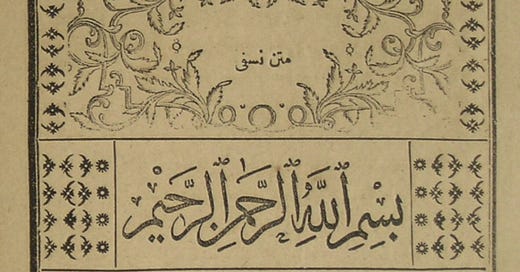 متن نسفی
بِسْمِ اللّٰهِ الرَّحْمٰنِ الرَّحِيْمِ